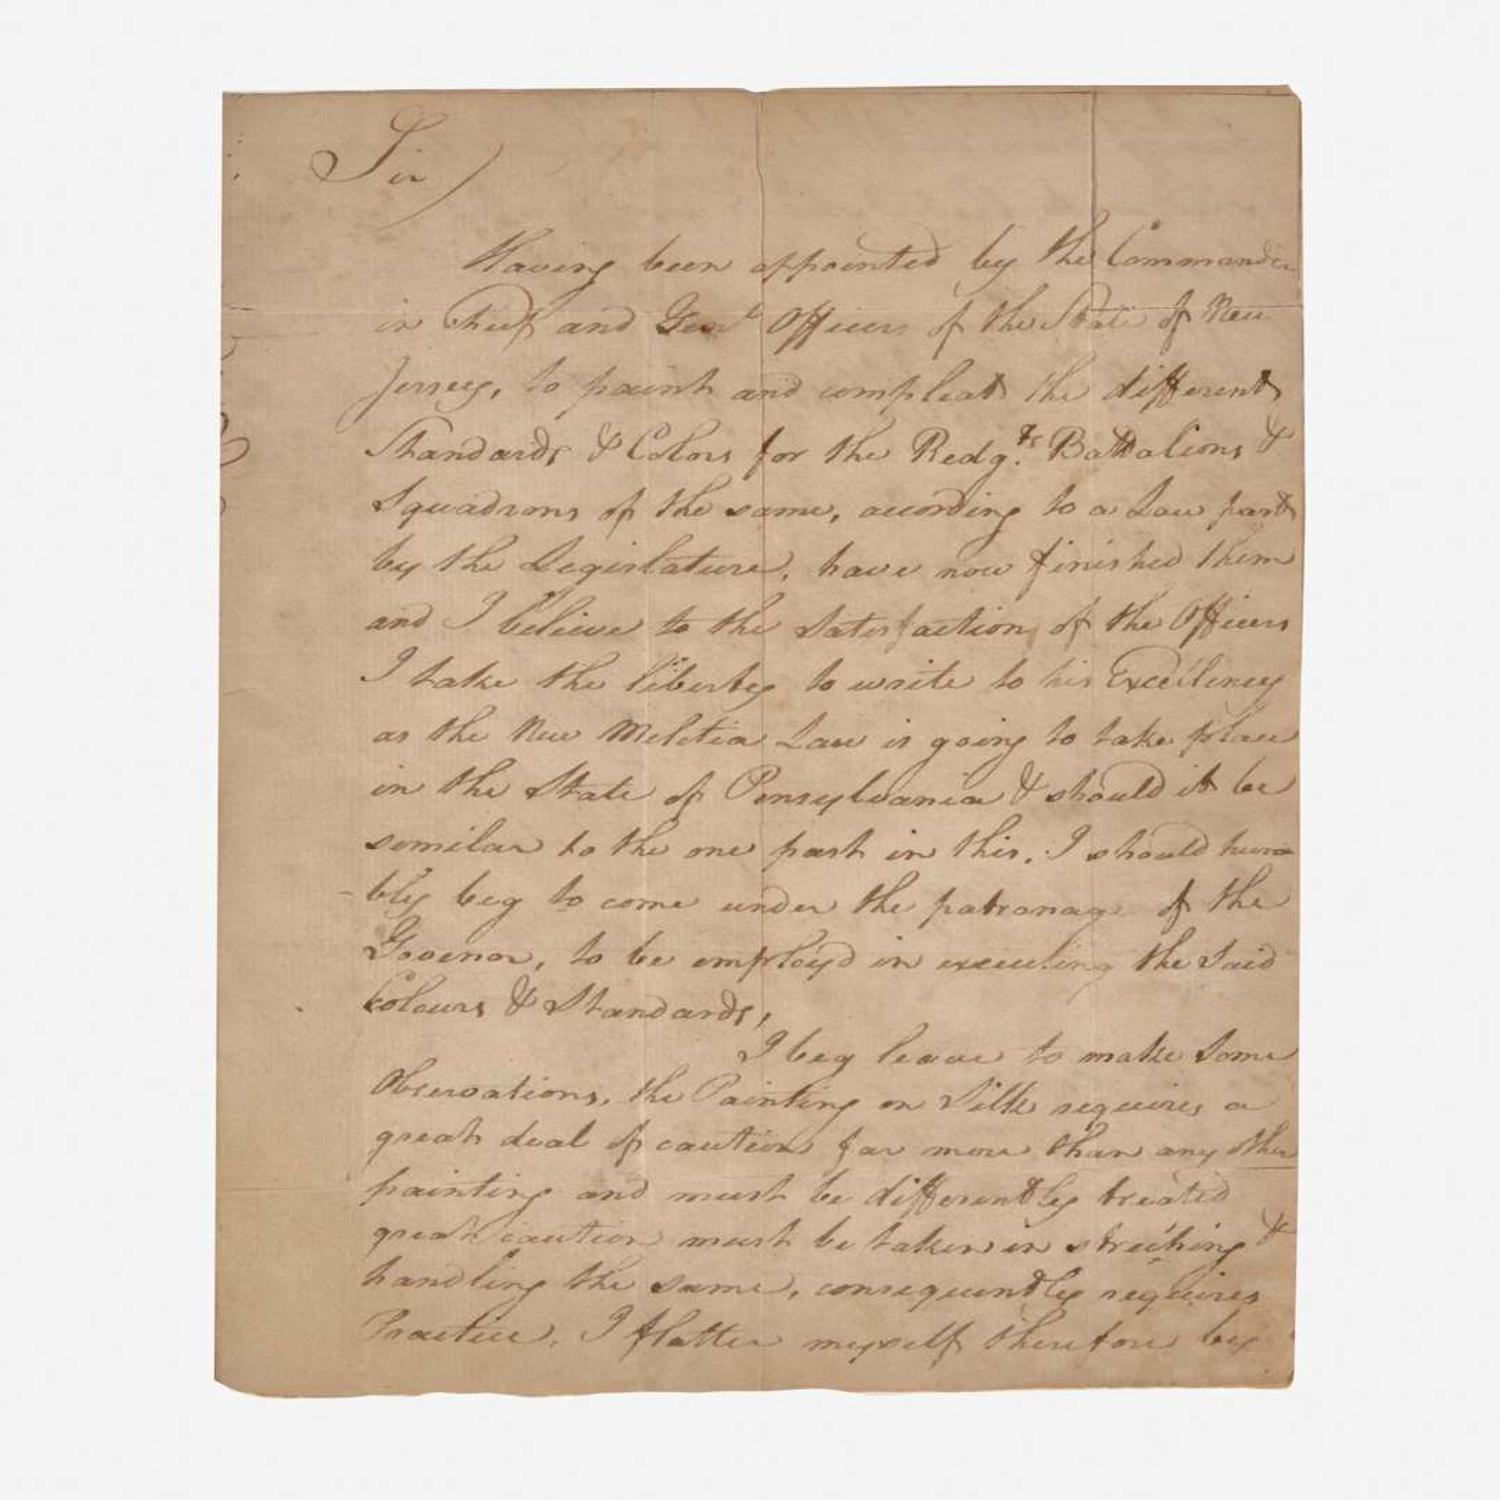 Sir
Having been appointed by the Commander
in Chief and Genl Officers of the State of New
Jersey, to paint and compleat the different
Standards & Colors for the Redg.ts Battalions &
Squadrons of the same, acording to a Law past
by the Legislature, have now finished them
and I believe to the Satisfaction of the Officers
I take the liberty to write to his Excellency
as the New Melitia Law is going to take place
in the State of Pensylvania & should it be
similar to the one past in this, I should hum
-bly beg to come under the patronage of the
Govenor, to be employ'd in executing the said
Colours & Standards,
I beg leave to make some
Observations, the Painting on Silk requires a
great deal of caution far more than any other
painting and must be differently treated
great caution must be taken in streching &
handling the same, consequently requires
Practice. I flatter myself therefore by